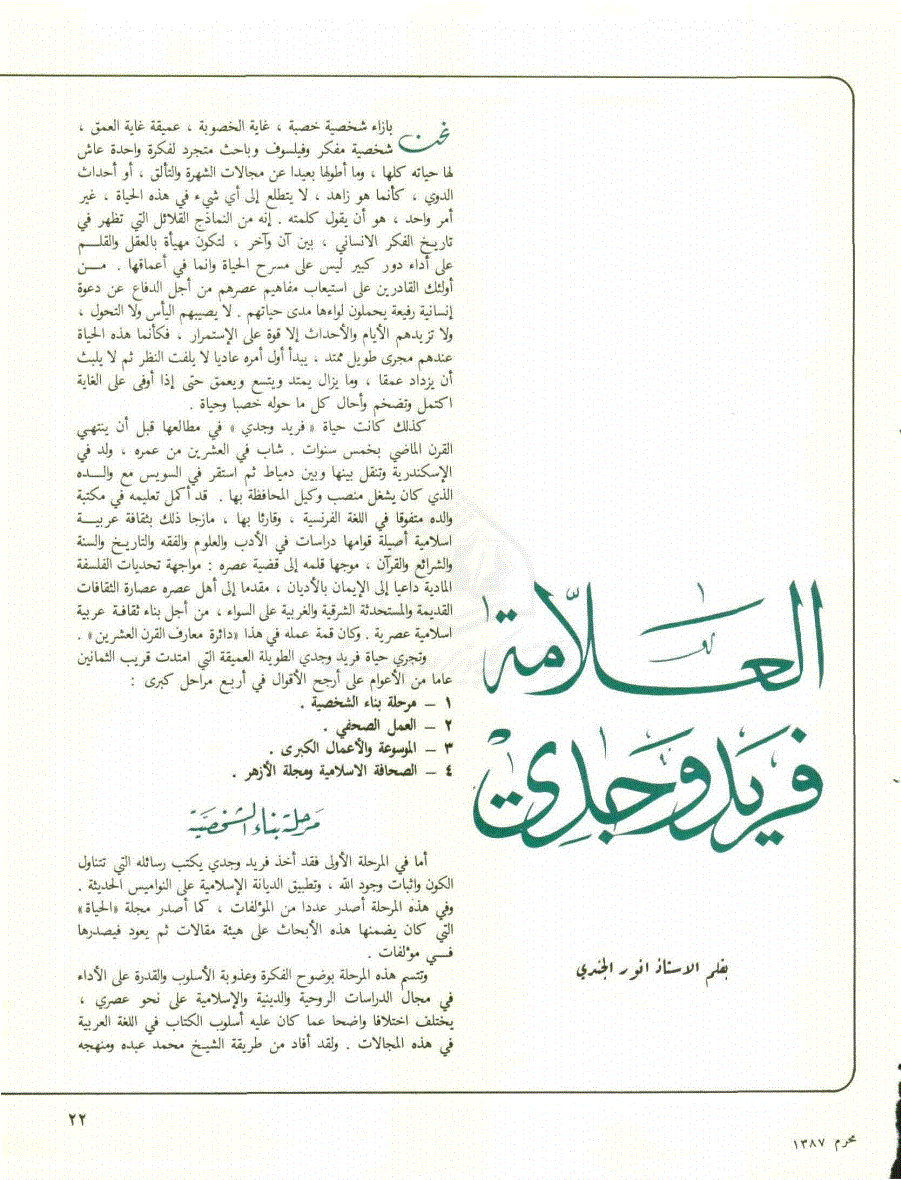 العلامة
فريد وجدي
بقلم الاستاذ انور الجندي
نحن بازاء شخصية خصبة ، غاية الخصوبة ، عميقة غاية العمق ،
شخصية مفكر وفيلسوف وباحث متجرد لفكرة واحدة عاش
لها حياته كلها ، وما أطولها بعيدا عن مجالات الشهرة والتألق ، أو أحداث
الدوي ، كأنما هو زاهد ، لا يتطلع إلى أي شيء في هذه الحياة ، غير
أمر واحد ، هو أن يقول كلمته . إنه من النماذج القلائل التي تظهر في
تاريخ الفكر الانساني ، بين آن وآخر ، لتكون مهيأة بالعقل والقلـــم
على أداء دور كبير ليس على مسرح الحياة وانما في أعماقها . مـــن
أولئك القادرين على استيعاب مفاهيم عصرهم من أجل الدفاع عن دعوة
إنسانية رفيعة يحملون لواءها مدى حياتهم . لا يصيبهم اليأس ولا التحول ،
ولا تزيدهم الأيام والأحداث إلا قوة على الإستمرار ، فكأنما هذه الحياة
عندهم مجرى طويل ممتد ، يبدأ أول أمره عاديا لا يلفت النظر ثم لا يلبث
أن يزداد عمقا ، وما يزال يمتد ويتسع ويعمق حتى إذا أوفى على الغاية
اكتمل وتضخم وأحال كل ما حوله خصبا وحياة .
كذلك كانت حياة « فريد وجدي » في مطالعها قبل أن ينتهي
القرن الماضي بخمس سنوات . شاب في العشرين من عمره ، ولد في
الإسكندرية وتنقل بينها وبين دمياط ثم استقر في السويس مع والـــده
الذي كان يشغل منصب وكيل المحافظة بها . قد أكمل تعليمه في مكتبة
والده متفوقا في اللغة الفرنسية ، وقارئا بها ، مازجا ذلك بثقافة عربيـــة
اسلامية أصيلة قوامها دراسات في الأدب والعلوم والفقه والتاريخ والسنة
والشرائع والقرآن ، موجها قلمه إلى قضية عصره : مواجهة تحديات الفلسفة
المادية داعيا إلى الإيمان بالأديان ، مقدما إلى أهل عصره عصارة الثقافات
القديمة والمستحدثة الشرقية والغربية على السواء ، من أجل بناء ثقافة عربية
اسلامية عصرية . وكان قمة عمله في هذا «دائرة معارف القرن العشرين» .
وتجري حياة فريد وجدي الطويلة العميقة التي امتدت قريب الثمانين
عاما من الأعوام على أرجح الأقوال في أربع مراحل كبرى :
١ – مرحلة بناء الشخصية .
٢ – العمل الصحفي .
٣ – الموسوعة والأعمال الكبرى .
٤ – الصحافة الاسلامية ومجلة الأزهر .
مرحلة بناء الشخصية
أما في المرحلة الأولى فقد أخذ فريد وجدي يكتب رسائله التي تتناول
الكون واثبات وجود الله ، وتطبيق الديانة الإسلامية على النواميس الحديثة .
وفي هذه المرحلة أصدر عددا من المؤلفات ، كما أصدر مجلة «الحياة»
التي كان يضمنها هذه الأبحاث على هيئة مقالات ثم يعود فيصدرها
فـــي مؤلفات .
وتتسم هذه المرحلة بوضوح الفكرة وعذوبة الأسلوب والقدرة على الأداء
في مجال الدراسات الروحية والدينية والإسلامية على نحو عصري ،
يختلف اختلافا واضحا عما كان عليه أسلوب الكتاب في اللغة العربية
في هذه المجالات . ولقد أفاد من طريقة الشيخ محمد عبده ومنهجه
٢٢
محرم ١٣٨٧